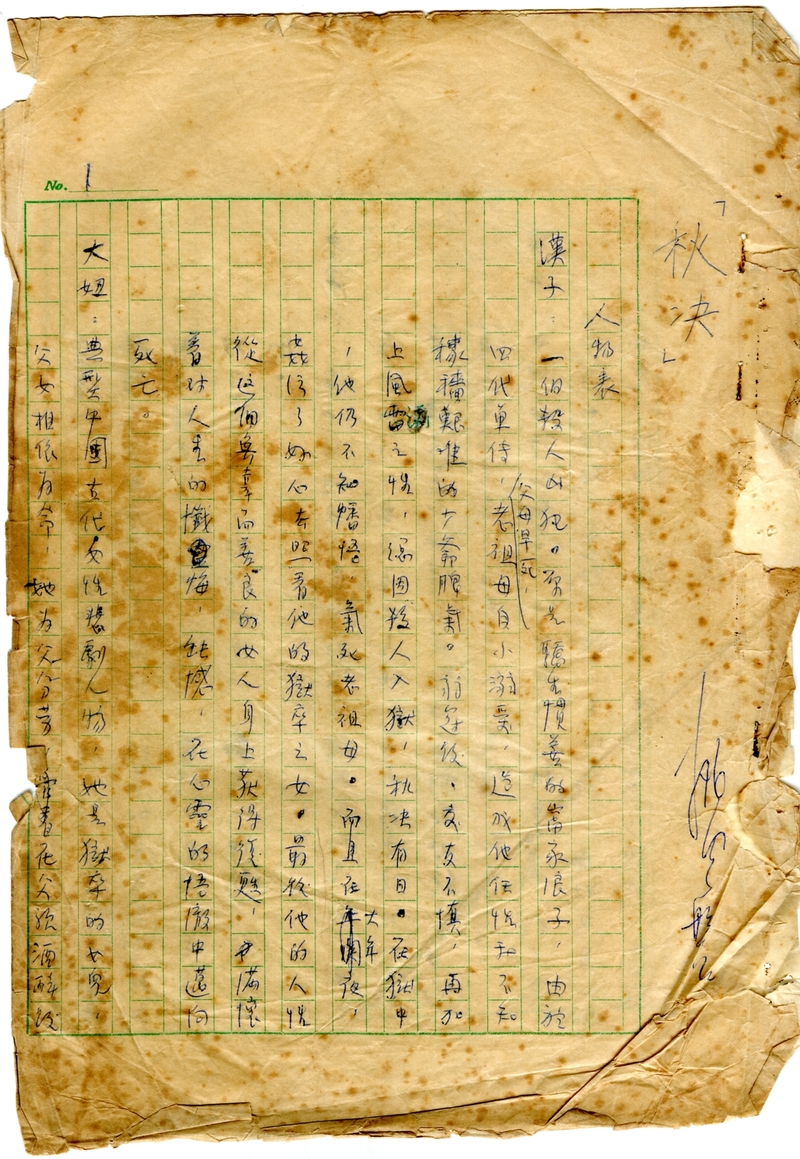 「秋决」
人物表
漢子：一個殺人凶犯。原是驕生慣養的富家浪子，由於
四代單傳，父母早死，老祖母自小溺愛，造成他任性和不知
稼穡艱难的少爺脾氣。弱冠後，交友不慎，再加
上風流之性，終因殺人入獄，秋决有日。在獄中
，他仍不知懺悟，氣死老祖母。而且在大年夜，
姦污了好心去照看他的獄卒之女。最後他的人性
從這個無辜而善良的女人身上获得復甦，才滿懷
着对人生的懺悔，缺憾，在心靈的悟徹中邁向
死亡。
大妞：典型中國古代女性悲劇人物，她是獄卒的女兒，
父女相依为命，她为父分劳，常看在父親酒醉後
No. 1